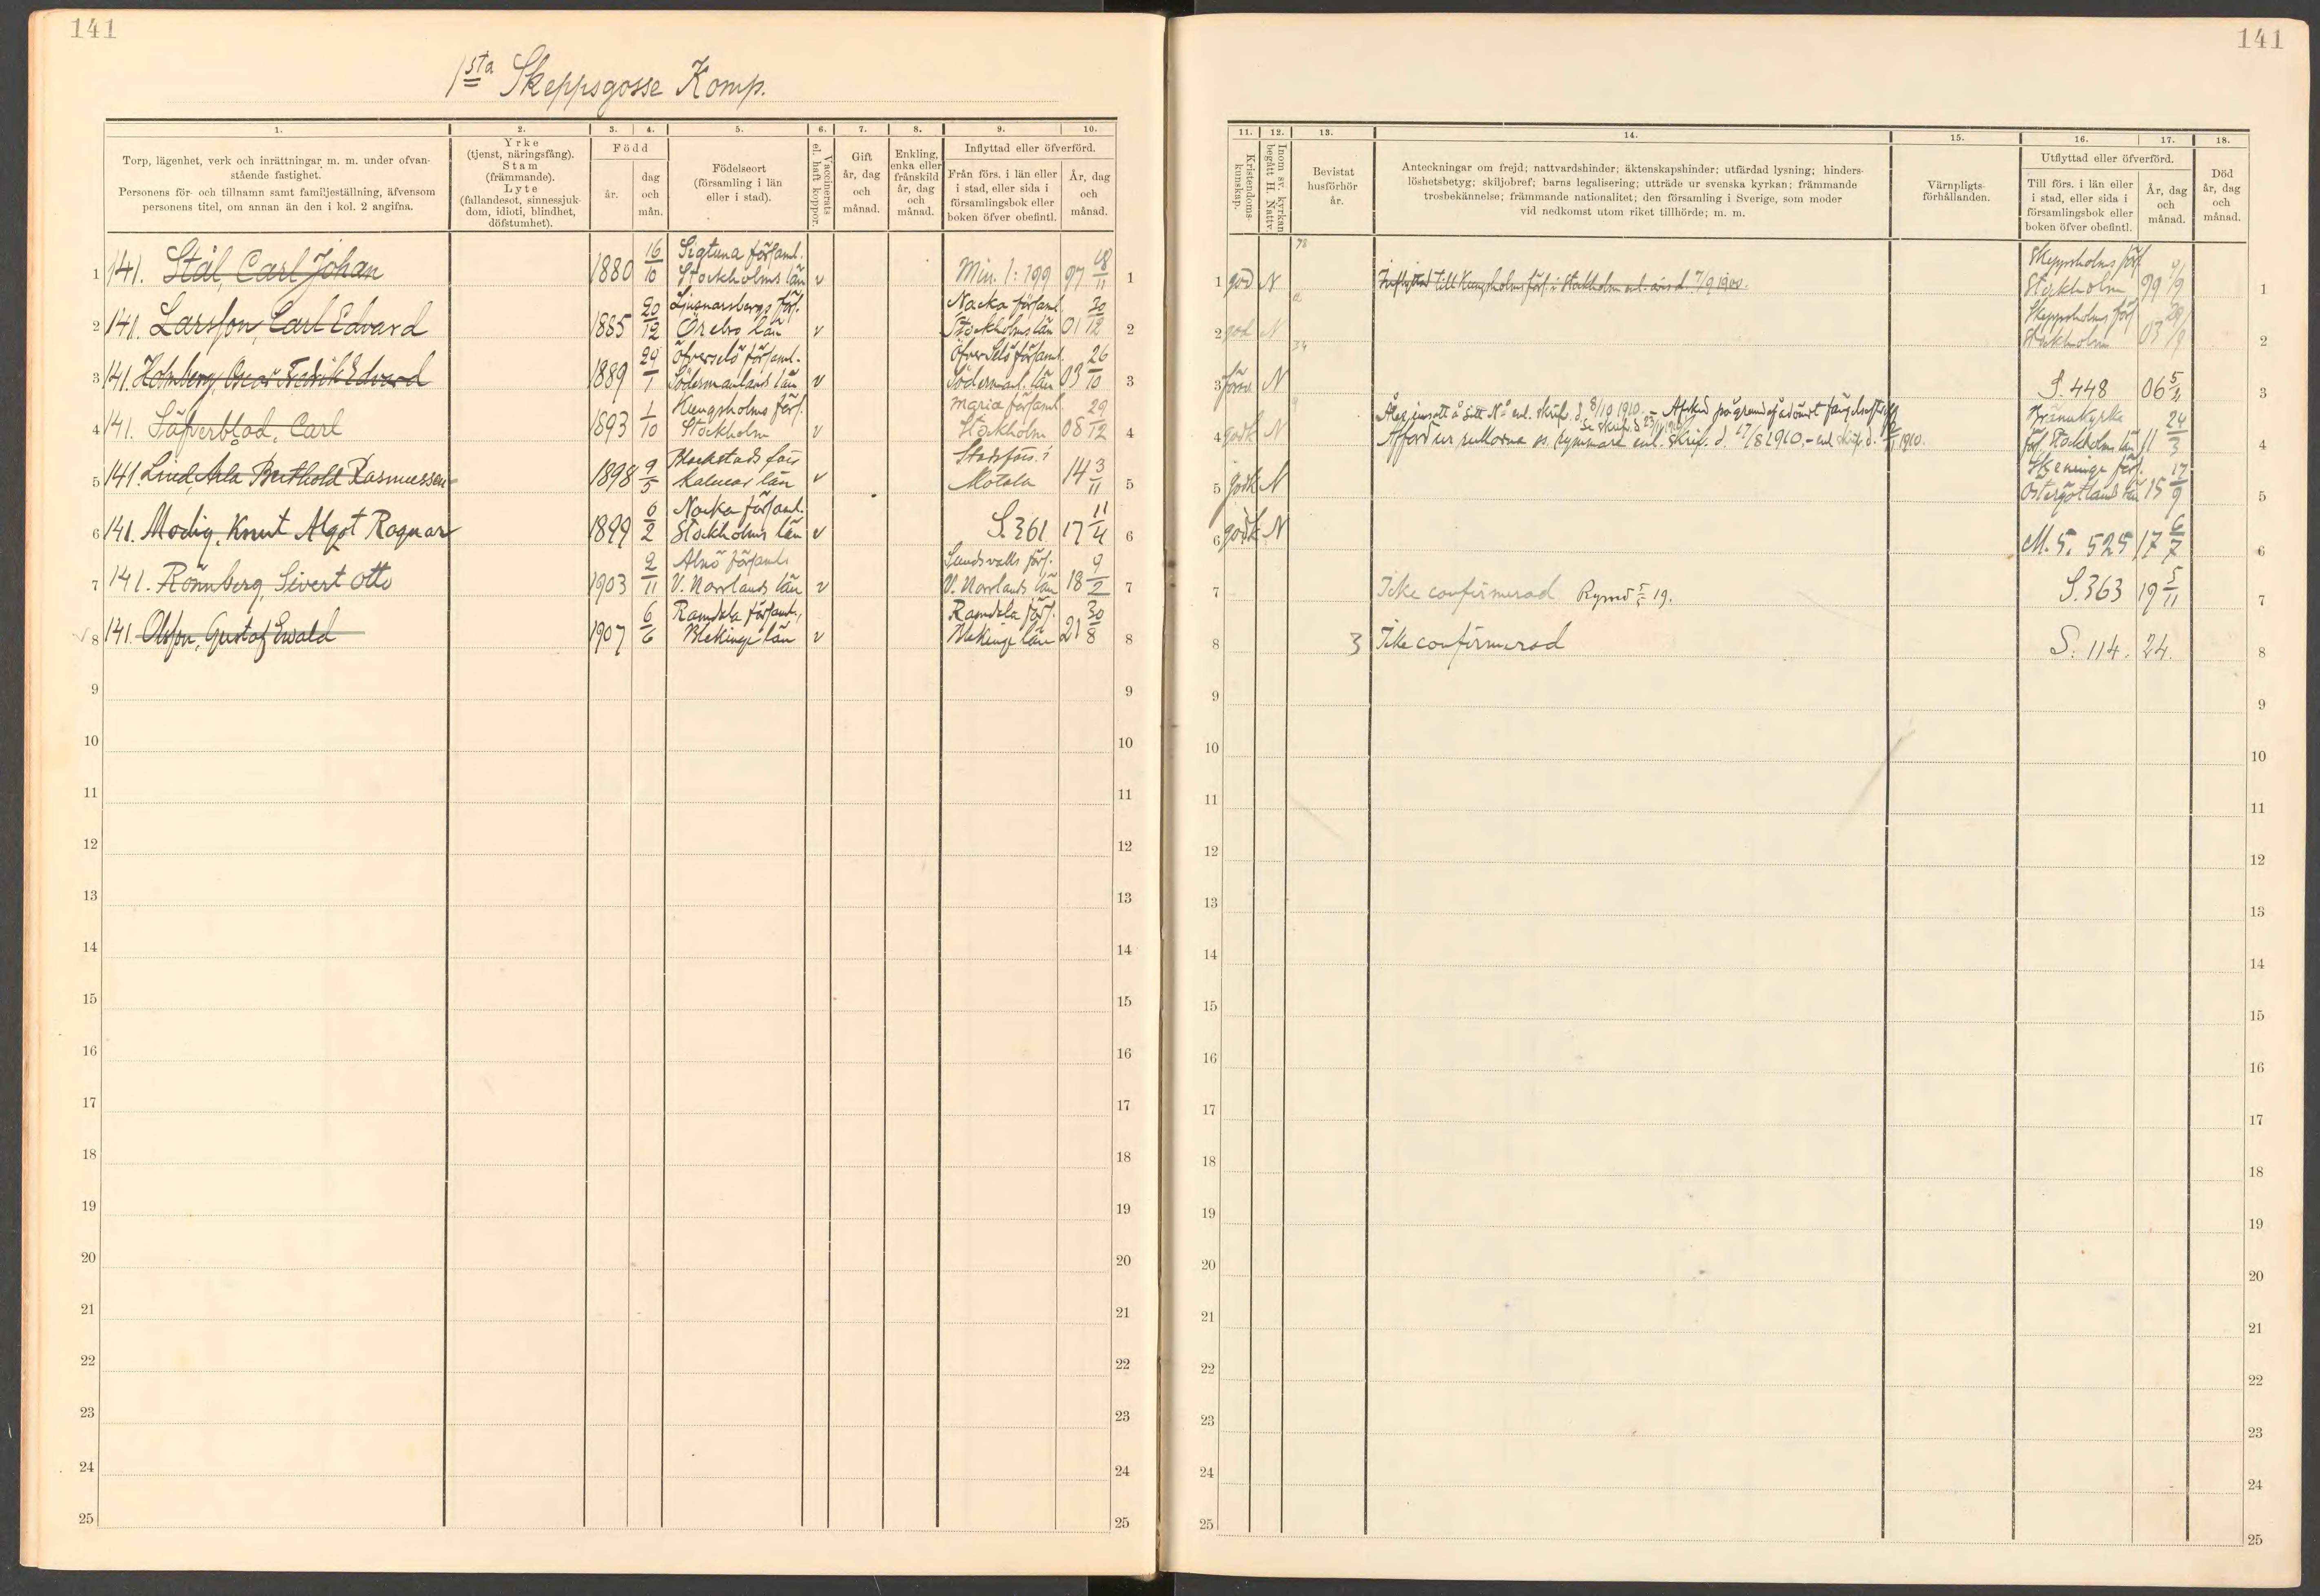 141
1sta Skeppsgosse Komp.
1. 2. 3. 4. 5. 6. 7. 8. 9. 10.
Torp, lägenhet, verk och inrättningar m. m. under ofvan-
stående fastighet.
Personens för- och tillnamn samt familjeställning, äfvensom
personens titel, om annan än den i kol. 2 angifna.
Yrke
(tjenst, näringsfång).
Stam
(främmande).
Lyte
(fallandesot, sinnessjuk-
dom, idioti, blindhet,
döfstumhet).
Född
år.
dag
och
mån.
Födelseort
(församling i län
eller i stad).
Vaccinerats
el. haft koppor.
Gift
år, dag
och
månad.
Enkling,
enka eller
frånskild
år, dag
och
månad.
Inflyttad eller öfverförd.
Från förs. i län eller
i stad, eller sida i
församlingsbok eller
boken öfver obefintl.
År, dag
och
månad.
1 141. Stål, Carl Johan 1880 16/10 Sigtuna församl. Stockholms län v Min. 1: 199 97 18/11 1
2 141. Larsson, Carl Edvard 1885 20/12 Ljusnarsbergs förs. Örebro län v Nacka församl. Stockholms län 01 30/12 2
3 141. Holmberg, Oscar Fredrik Edvard 1889 29/1 Öfverselö församl. Södermanlands län v Öfver Selö församl. Söderманl. län 03 26/10 3
4 141. Säfverblad, Carl 1893 1/10 Kungsholms förs. Stockholm v Maria församl. Stockholm 08 29/12 4
5 141. Lind, Berthold Rasmussen 1898 9/5 Blackstads förs Kalmar län v Stadsförs. i Motala 14 3/11 5
6 141. Modig, Knut Algot Ragnar 1899 6/2 Nacka församl. Stockholms län v S. 361 17 11/4 6
7 141. Rönnberg, Sivert Otto 1903 2/11 Alnö församl. V. Norrlands län v Sundsvalls förs. V. Norrlands län 18 9/2 7
8 141. Olsson, Gustaf Ewald 1907 6/6 Ramdala församl., Blekinge län v Ramdala förs. Blekinge län 21 30/8 8
9 9
10 10
11 11
12 12
13 13
14 14
15 15
16 16
17 17
18 18
19 19
20 20
21 21
22 22
23 23
24 24
25 25
141
11. 12. 13. 14. 15. 16. 17. 18.
Kristendoms-
kunskap.
Inom sv. kyrkan
begått H. Nattv.
Bevistat
husförhör
år.
Anteckningar om frejd; nattvardshinder; äktenskapshinder; utfärdad lysning; hinders-
löshetsbetyg; skiljobref; barns legalisering; utträde ur svenska kyrkan; främmande
trosbekännelse; främmande nationalitet; den församling i Sverige, som moder
vid nedkomst utom riket tillhörde; m. m.
Värnpligts-
förhållanden.
Utflyttad eller öfverförd.
Till förs. i län eller
i stad, eller sida i
församlingsbok eller
boken öfver obefintl.
År, dag
och
månad.
Död
år, dag
och
månad.
1 god N Till Kungsholms förs. i Stockholm enl. avis d. 7/9 1900. Skeppsholms förs Stockholm 99 9/9 1
2 god N Skeppsholms förs Stockholm 03 29/9 2
3 N S. 448 06 3
4 godk N Åter insatt å sitt No enl. skrifv. d. 8/10 1910. - Afsked på grund af ådömt
Afförd ur rullorna ss. rymmare enl. skrif. d. 17/8 1910, - enl. skrif. d. 1910. Brännkyrka förs. Stockholms län 11 24/3 4
5 godk N Skeninge förs. Östergötlands län 15 17/9 5
6 godk N M. S. 525 17 6/7 6
7 Icke confirmerad Rymd 19. S. 363 19 5/11 7
8 3 Icke confirmerad S. 114. 24. 8
9 9
10 10
11 11
12 12
13 13
14 14
15 15
16 16
17 17
18 18
19 19
20 20
21 21
22 22
23 23
24 24
25 25